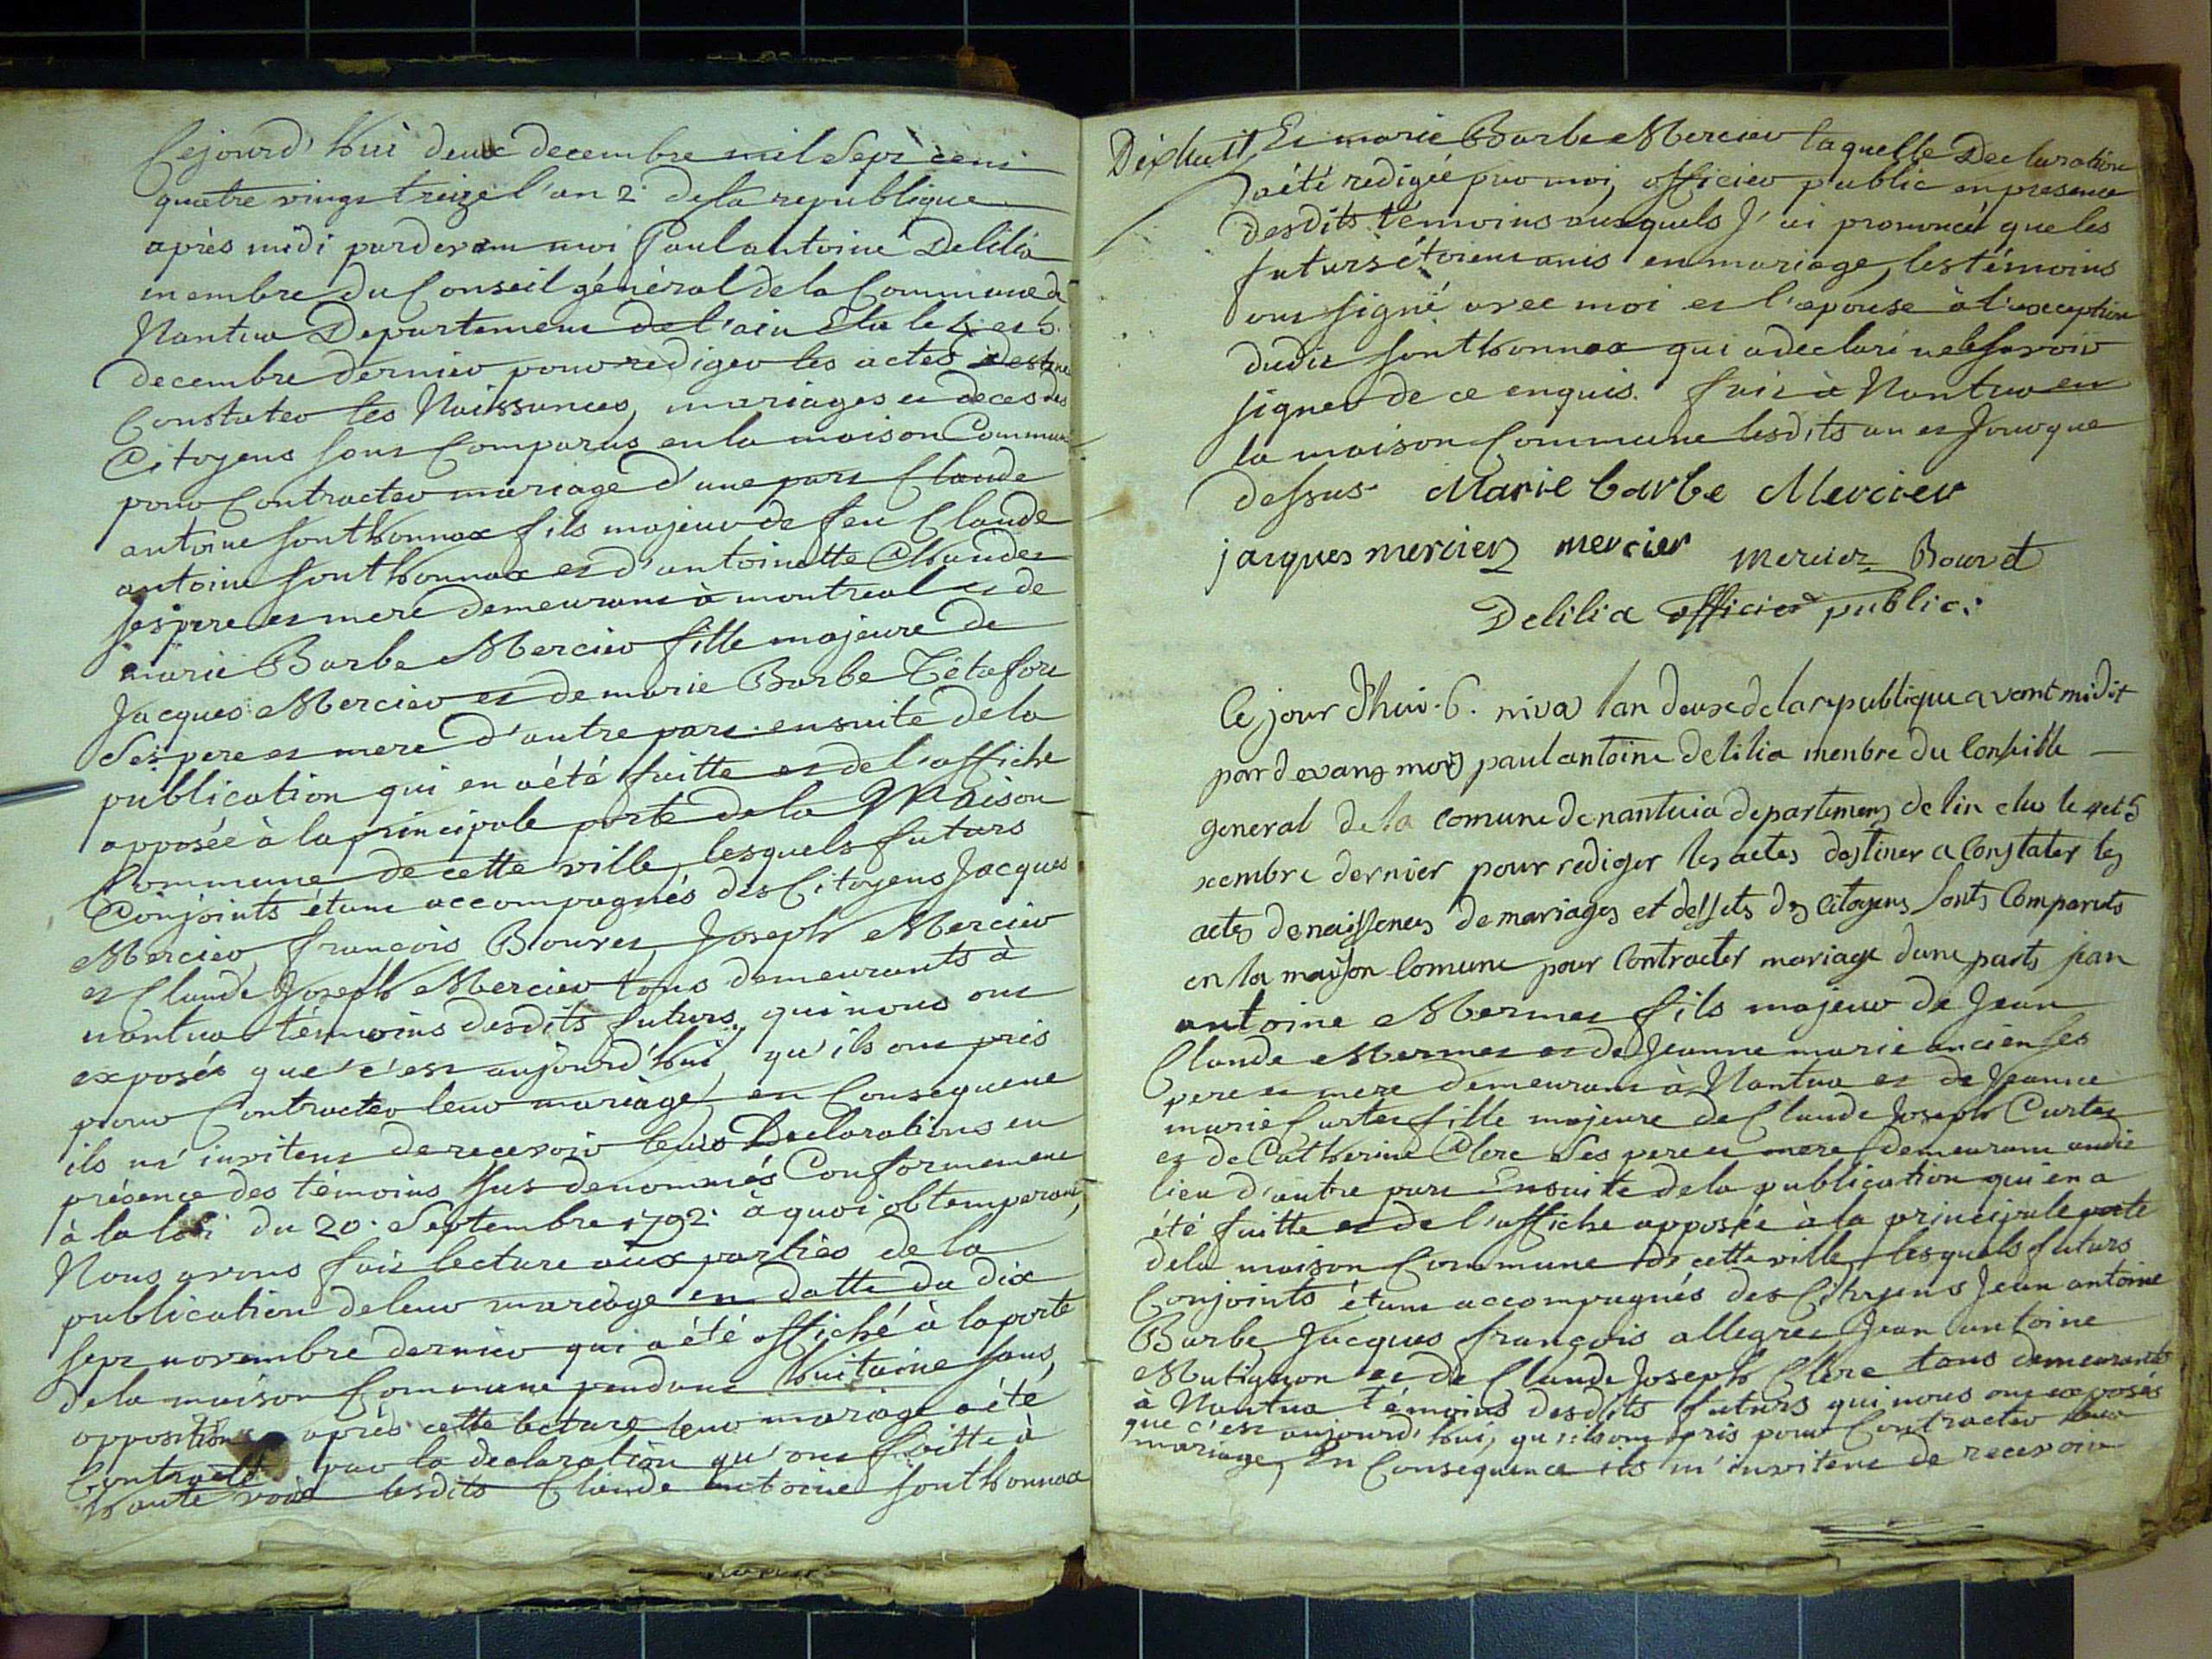 Cejourd'hui deux decembre mil sept cent
quatre vingt treize l'an 2.e de la republique
après midi pardevant moi Paul antoine Delilia
membre du Conseil général de la Commune de
Nantua Departement de l'ain Elu le 4 et 5.
decembre dernier pour rediger les actes destiné
Constater les Naissances, mariages et deces des
Citoyens sont Comparus en la maison Commune
pour Contracter mariage d'une part Claude
antoine sonthonnax fils majeur de feu Claude
antoine sonthonnax et d'antoinette Chaudet
ses pere et mere demeurant à montreal et de
marie Barbe Mercier fille majeure de
Jacques Mercier et de marie Barbe Tétafort
Ses pere et mere d'autre part. ensuite de la
publication qui en a été faitte et de l'affiche
apposée à la principale porte de la Maison
Commune de cette ville, lesquels futurs
Conjoints étant accompagnés des Citoyens Jacques
Mercier, françois Bouvet, Joseph Mercier
et Claude Joseph Mercier tous demeurants à
nantua témoins desdits futurs, qui nous ont
exposés que c'est aujourd'hui, qu'ils ont pris
pour Contracter leur mariage, en Consequence
ils m'invitent de recevoir leurs Declarations en
présence des témoins sus denommés Conformement
à la loi du 20. Septembre 1792. à quoi obtemperant,
Nous avons fait lecture aux parties de la
publication de leur mariage en datte du dix
sept novembre dernier qui a été affiché à la porte
de la maison Commune pendant huitaine sans
opposition, après cette lecture leur mariage a été
Contracté par la declaration qu'ont faitte à
haute voix lesdits Claude antoine sonthonnax
Dixhuit
Et marie Barbe Mercier laquelle Declaration
a été redigée par moi, officier public en presence
desdits témoins auxquels J'ai prononcé que les
futurs étoient unis en mariage, les témoins
ont signé avec moi et l'epouse à l'exception
dudit sonthonnax qui a declaré ne le savoir
signer de ce enquis. fait à Nantua en
la maison Commune lesdits an et Jour que
dessus. Marie barbe Mercier
jacques mercier mercier mercier Bouvet
Delilia officier public.
Ce jour d'hui. 6. niva lan deuxe de la republique avant midit
par devang moy paul antoine delilia menbre du Conseille
general de la comune de nantuia departemeng de lin elus le 4 et 5
xembre dernier pour rediger les actes destiner a Constater les
actes de naissences de mariages et dessets des Citoyens Sonts Comparuts
en la maison Comune pour Contracter mariage dune parts jean
antoine Mermet fils majeur de Jean
Claude Mermet et de Jeanne marie ancien ses
pere et mere demeurant à Nantua et de Jeanne
marie Curtet fille majeure de Claude Joseph Curtet
et de Catherine Clerc Ses pere et mere demeurant audit
lieu d'autre part Ensuite de la publication qui en a
été faitte et de l'affiche apposée à la principale porte
de la maison Commune de cette ville, lesquels futurs
Conjoints étant accompagnés des Citoyens Jean antoine
Barbe, Jacques françois allegret, Jean antoine
Matignon et de Claude Joseph Clerc tous demeurants
à Nantua témoins desdits futurs qui nous ont exposés
que c'est aujourd'hui, qu'ils ont pris pour Contracter leur
mariage, En Consequence ils m'invitent de recevoir